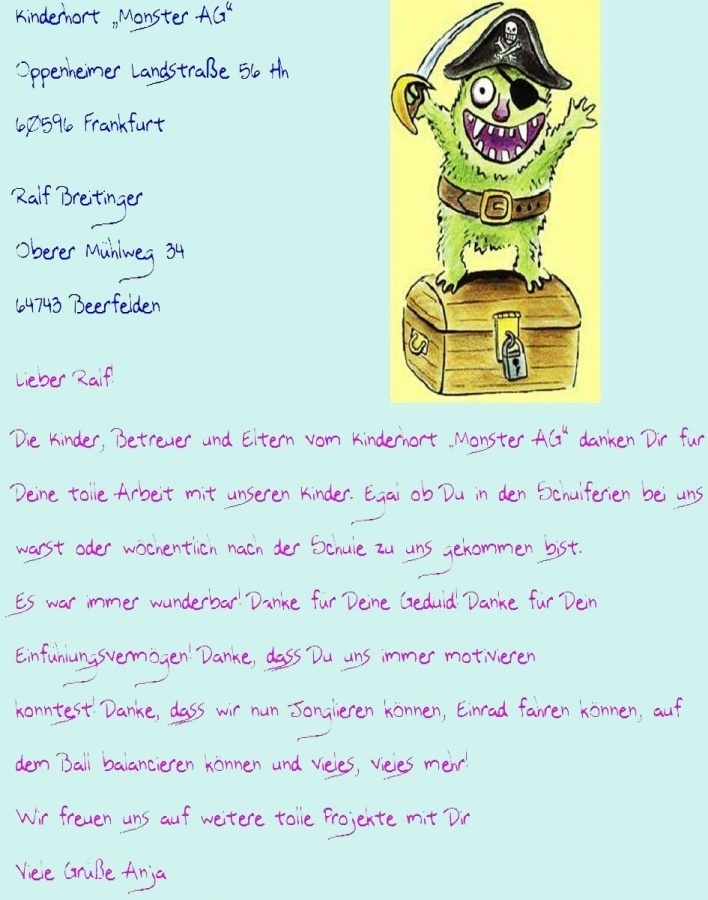 Kinderhort „Monster AG“
Oppenheimer Landstraße 56 Hh
60596 Frankfurt
Ralf Breitinger
Oberer Mühlweg 34
64743 Beerfelden
Lieber Ralf!
Die Kinder, Betreuer und Eltern vom Kinderhort „Monster AG“ danken Dir für
Deine tolle Arbeit mit unseren Kinder. Egal ob Du in den Schulferien bei uns
warst oder wöchentlich nach der Schule zu uns gekommen bist.
Es war immer wunderbar! Danke für Deine Geduld! Danke für Dein
Einfühlungsvermögen! Danke, dass Du uns immer motivieren
konntest! Danke, dass wir nun Jonglieren können, Einrad fahren können, auf
dem Ball balancieren können und vieles, vieles mehr!
Wir freuen uns auf weitere tolle Projekte mit Dir
Viele Grüße Anja